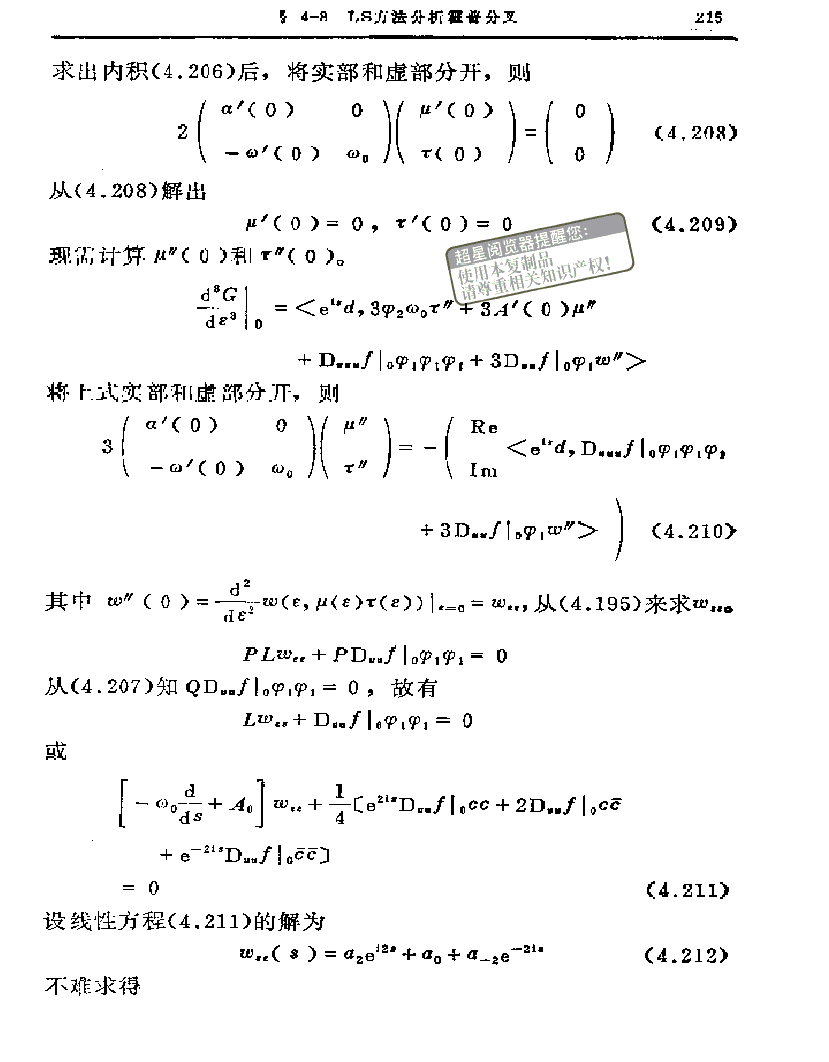 § 4-8 LS方法分析霍普分叉 215
求出内积(4.206)后，将实部和虚部分开，则
2 ( α′(0) 0 ) ( μ′(0) ) = ( 0 ) (4.208)
( −ω′(0) ω₀ ) ( τ(0) ) ( 0 )
从(4.208)解出
μ′(0)= 0，τ′(0)= 0 (4.209)
现需计算 μ″(0)和 τ″(0)。
超星阅览器提醒您：
使用本复制品
请尊重相关知识产权！
d³G/dε³ |₀ = <e^{is}d, 3φ₂ω₀τ″ + 3A′(0)μ″
+ D_{uuu}f|₀φ₁φ₁φ₁ + 3D_{uu}f|₀φ₁w″>
将上式实部和虚部分开，则
3 ( α′(0) 0 ) ( μ″ ) = − ( Re <e^{is}d, D_{uuu}f|₀φ₁φ₁φ₁
( −ω′(0) ω₀ ) ( τ″ ) ( Im
+ 3D_{uu}f|₀φ₁w″> ) (4.210)
其中 w″(0)= d²/dε² w(ε, μ(ε)τ(ε))|_{ε=0} = w_{εε}，从(4.195)来求w_{εε}。
PLw_{εε} + PD_{uu}f|₀φ₁φ₁ = 0
从(4.207)知 QD_{uu}f|₀φ₁φ₁ = 0，故有
Lw_{εε} + D_{uu}f|₀φ₁φ₁ = 0
或
[ −ω₀ d/ds + A₀ ] w_{εε} + 1/4 [e^{2is}D_{uu}f|₀cc + 2D_{uu}f|₀cc̄
+ e^{−2is}D_{uu}f|₀c̄c̄]
= 0 (4.211)
设线性方程(4.211)的解为
w_{εε}(s) = a₂e^{i2s} + a₀ + a₋₂e^{−2is} (4.212)
不难求得